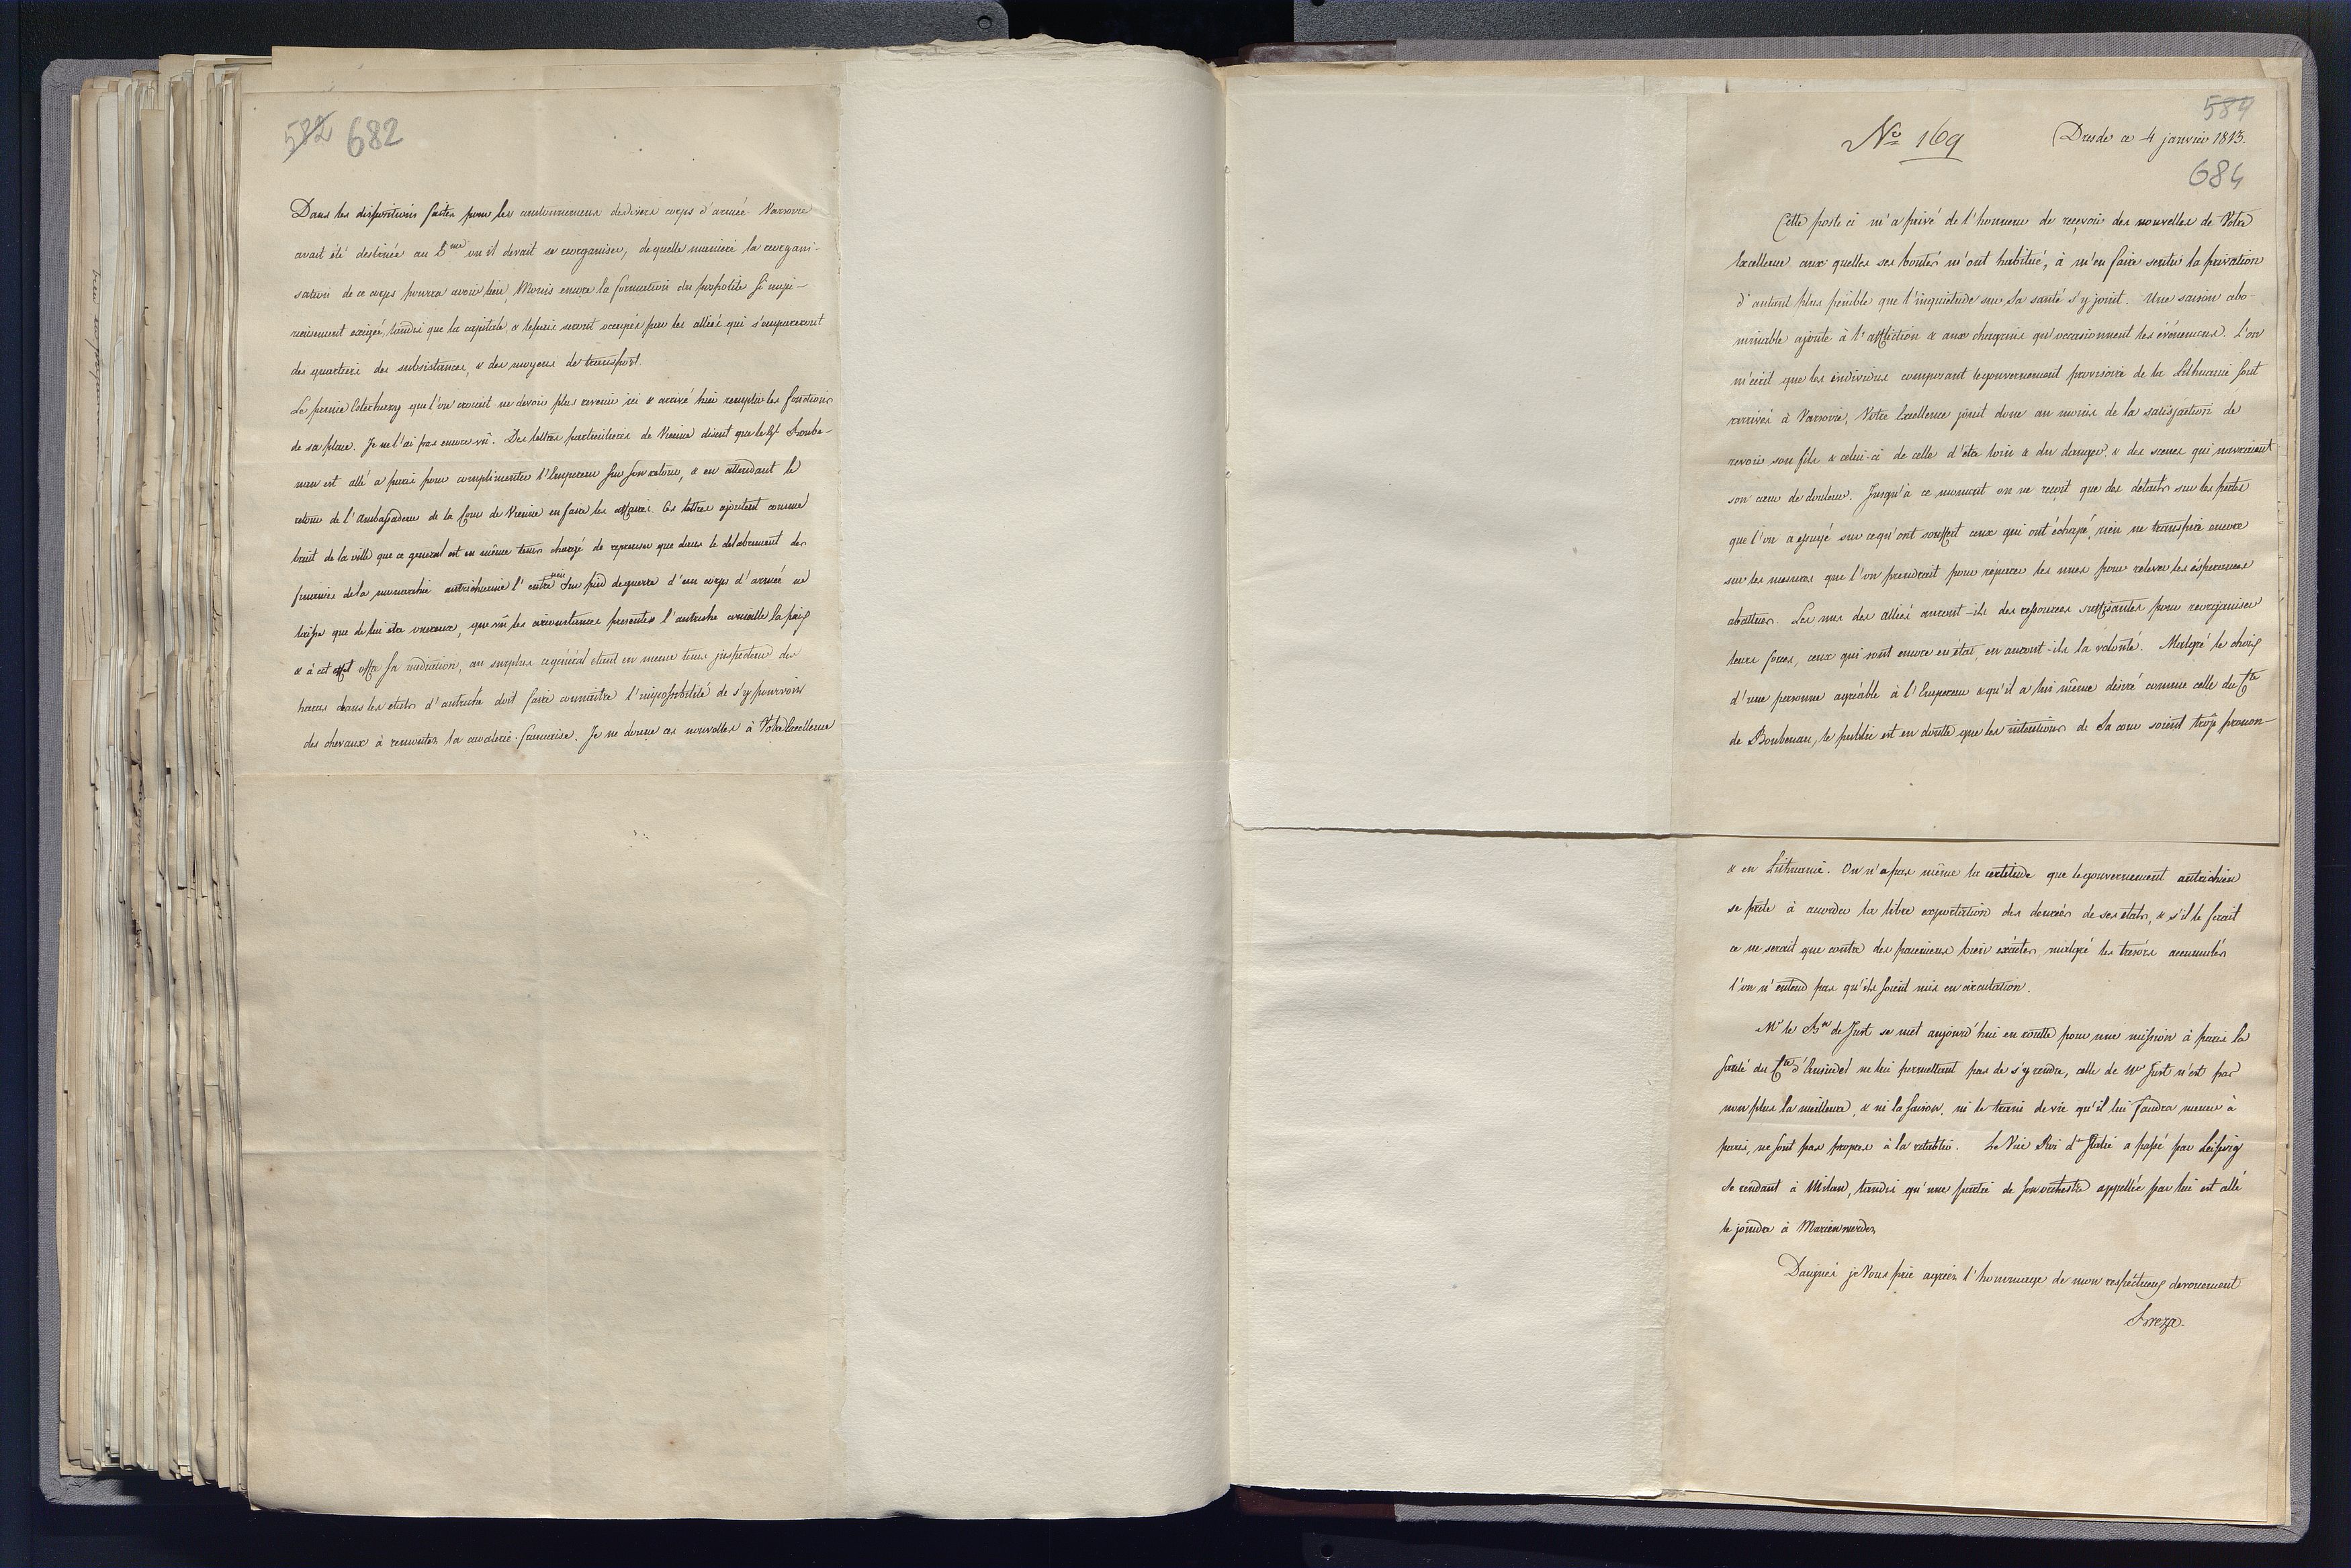 582 682
Dans les dispositions faites pour les cantonnemens des divers corps d'armée Varsovie
avait été destinée au 5me où il devait se reorganiser, de quelle maniere la reorgani-
sation de ce corps pourra avoir lieu, Moins encore la formation du pospolite si impi-
reusement exigée, tandis que la capitale, & seront occupés par les alliés qui s'empareront
des quartiers des subsistances, & des moyens de transport.
Le prince Esterhazy que l'on croiait ne devoir plus revenir ici & arrivé hier remplir les fonctions
de sa place. Je ne l'ai pas encore vû. Des lettres particulieres de Vienne disent que le Gl Boube-
nau est allé a paris pour complimenter l'Empereur sur son retour, & en attendant le
retour de l'Ambassadeur de la Cour de Vienne en faire les affaires. Ces lettres ajoutent comme
bruit de la ville que ce general est en même tems chargé de representer que dans le delabrement des
finances de la monarchie autrichienne l'entretien sur pied de guerre d'un corps d'armée ne
laisse que de lui être onereux, que vû les circonstances presentes l'autriche conseille la paix
& à cet effet offre sa mediation, au surplus ce général etant en meme tems inspecteur des
haras dans les etats d'autriche doit faire connaitre l'impossibilité de s'y pourvoir
des chevaux à remonter la cavalerie française. Je ne donne ces nouvelles à Votre Excellence
584
No 169 Dresde ce 4 janvier 1813.
684
Cette poste ci m'a privé de l'honneur de reçevoir des nouvelles de Votre
Excellence aux quelles ses bontés m'ont habitué, à m'en faire sentir la privation
d'autant plus penible que l'inquietude sur Sa santé s'y joint. Une saison abo-
minable ajoute à l'affliction & aux chagrins qu'occasionnent les évenemens. L'on
m'écrit que les individus composant le gouvernement provisoire de la Lithuanie sont
arrivés à Varsovie, Votre Excellence jouit donc au moins de la satisfaction de
revoir son fils & celui-ci de celle d'être loin & du danger & des scenes qui navraient
son cœur de douleur. Jusqu'à ce moment on ne reçoit que des détails sur les pertes
que l'on a essuyé sur ce qu'ont souffert ceux qui ont échapé, rien ne transpire encore
sur les mesures que l'on prendrait pour réparer les unes pour relever les espérances
abattues. Les uns des alliés auront-ils des ressources suffisantes pour reorganiser
leurs forces, ceux qui sont encore en état, en auront-ils la volonté. Malgré le choix
d'une personne agréable à l'Empereur & qu'il a lui même désiré comme celle du Cte
de Boubenau, le public est en doutte que les intentions de Sa cour soient trop pronon-
& en Lithuanie. On n'a pas même la certitude que le gouvernement autrichien
se prete à accorder la libre exportation des denrées de ses etats, & s'il le ferait
ce ne serait que contre des paiemens bien exactes malgré les tresors accumulés
l'on n'entend pas qu'ils soient mis en circulation.
Mr le Bn de Just se met aujourd'hui en routte pour une mission à paris la
santé du Cte d'Einsiedel ne lui permettant pas de s'y rendre, celle de Mr Just n'est pas
non plus la meilleure, & ni la saison, ni le train de vie qu'il lui faudra mener à
paris, ne sont pas propres à la retablir. Le Vice Roi d'Italie a passé par Leipzig
se rendant à Milan, tandis qu'une partie de son orchestre appellée par lui est allé
le joindre à Marienwerder
Daignés je Vous prie agréer l'hommage de mon respectueux devouement
Breza.